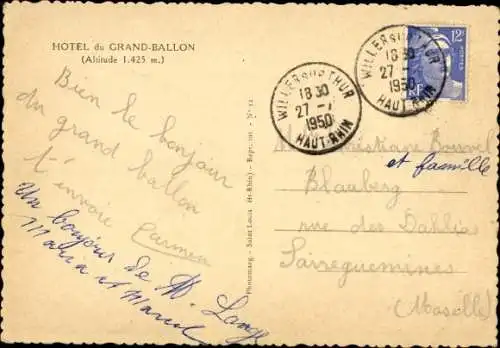 HOTEL du GRAND-BALLON
(Altitude 1.425 m.)
Bien le bonjour
du grand ballon
t'envoie Carmen
Un bonjour de M. Lange
Maria et Marcel
Photomag. - Saint Louis (Ht-Rhin) - Repr. int. - N° 12
WILLER SUR THUR
18 30
27 -
1950
HAUT-RHIN
WILLER SUR THUR
18 30
27
1950
HAUT-RHIN
12F
RF
Christiane
et famille
Blauberg
rue des Dahlias
Sarreguemines
(Moselle)